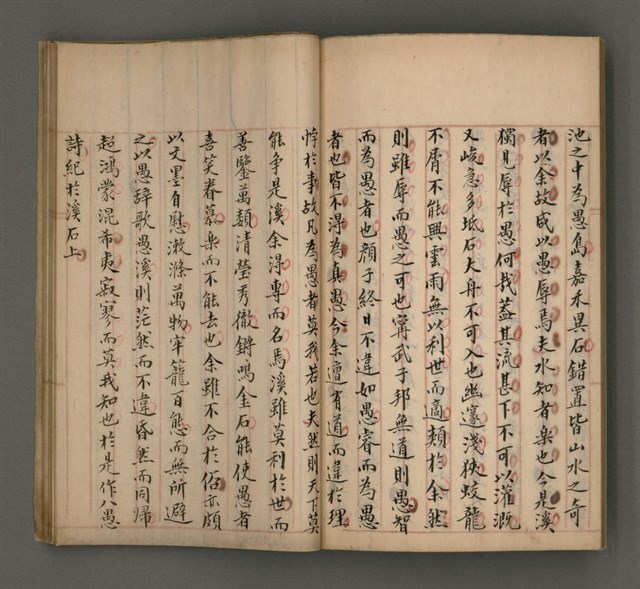 池之中為愚島嘉禾異石錯置皆山水之奇
者以余故咸以愚辱焉夫水知者樂也今是溪
獨見辱於愚何哉蓋其流甚下不可以灌溉
又峻急多坻石大舟不可入也幽邃淺狹蛟龍
不屑不能興雲雨無以利世而適類於余然
則雖辱而愚之可也甯武子邦無道則愚智
而為愚者也顏子終日不違如愚睿而為愚
者也皆不得為真愚今余遭有道而違於理
悖於事故凡為愚者莫我若也夫然則天下莫
能爭是溪余得專而名焉溪雖莫利於世而
善鑒萬類清瑩秀徹鏘鳴金石能使愚者
喜笑眷慕樂而不能去也余雖不合於俗亦頗
以文墨自慰漱滌萬物牢籠百態而無所避
之以愚辭歌愚溪則茫然而不違昏然而同歸
超鴻蒙混希夷寂寥而莫我知也於是作八愚
詩紀於溪石上